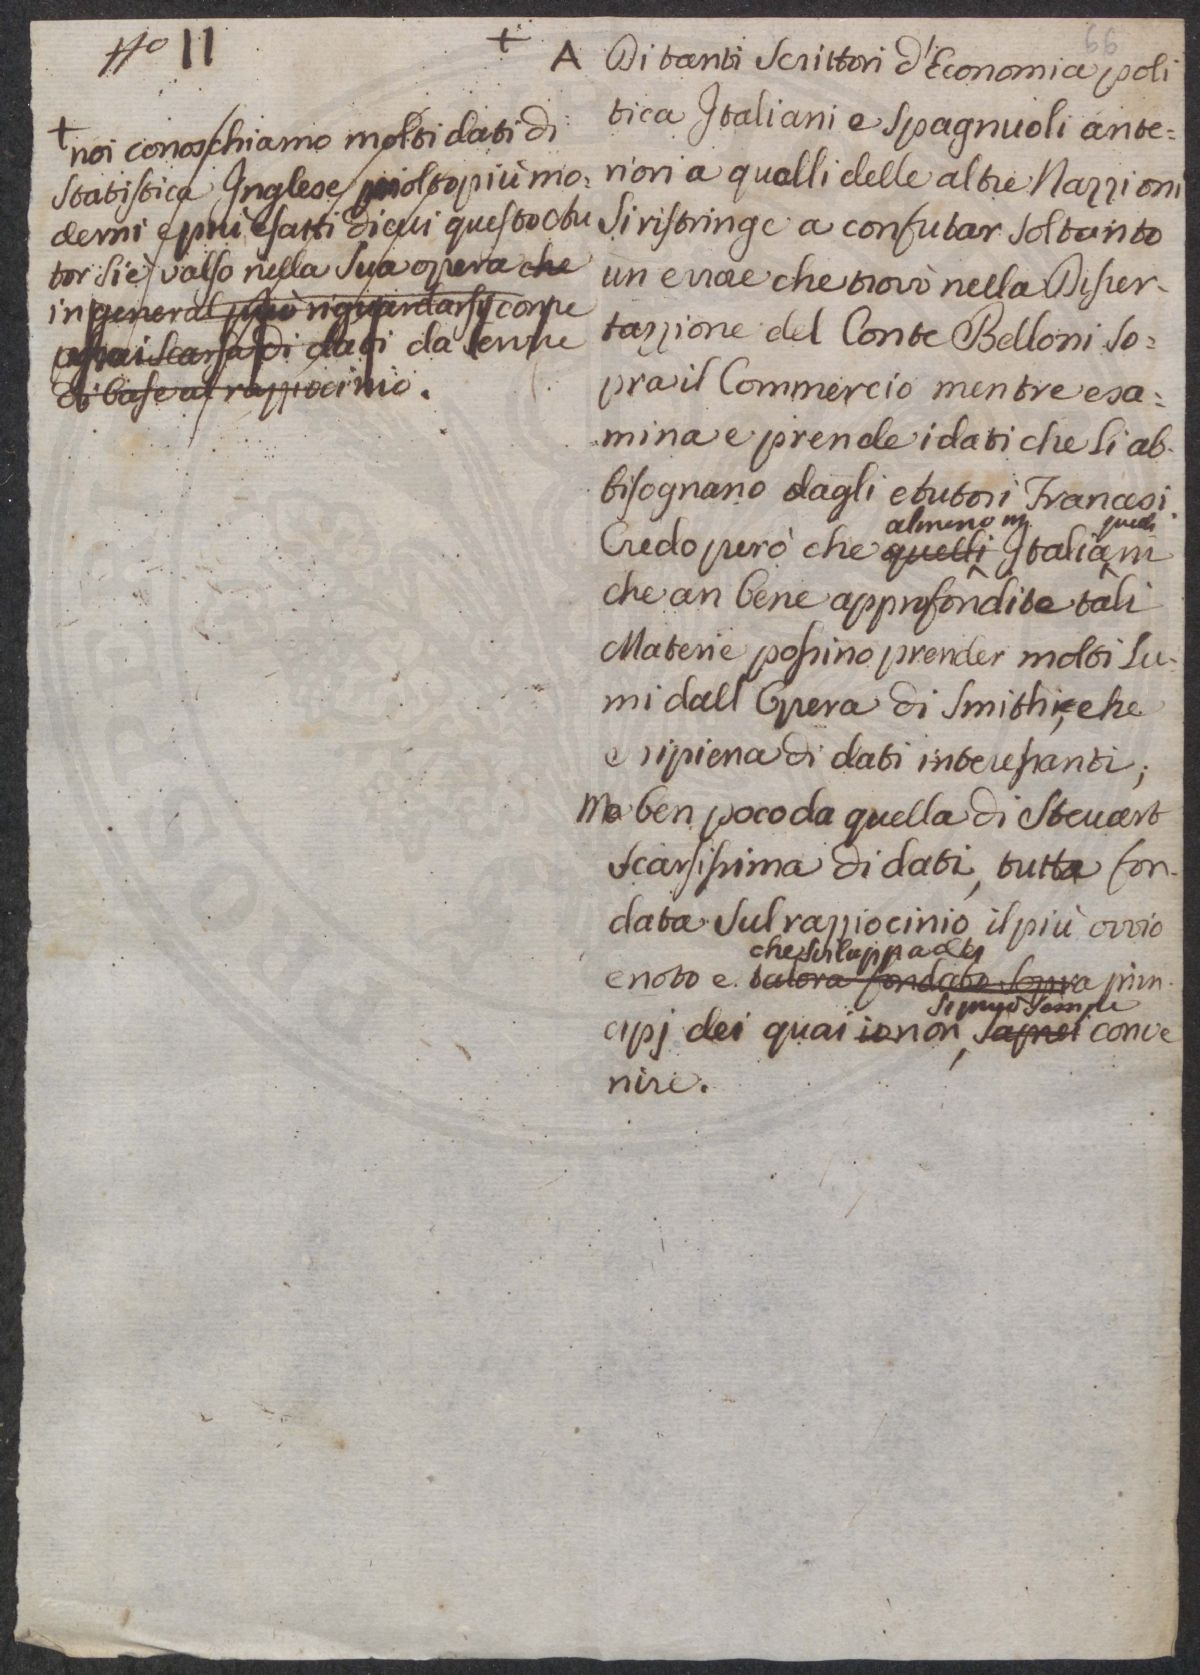 66
11
+
+ noi conoschiamo molti dati di
Statistica Inglese molto più mo:
derni e più esatti di cui questo Au
tor si è valso nella Sua opera che
in general può riguardarsi come
assai scarsa di dati da servire
di base al razziocinio.
A Di tanti Scrittori d'Economia poli
tica Italiani e Spagnuoli ante=
riori a quelli delle altre Nazzioni
Si ristringe a confutar Soltanto
un errore che trovò nella Disser-
tazzione del Conte Belloni So=
pra il Commercio mentre esa=
mina e prende i dati che Si ab-
bisognano dagli Autori Francesi.
almeno quei
Credo però che quelli Italiani
che an bene approfondite tali
Materie possino prender molti Lu-
mi dall Opera di Smith, che
e ripiena di dati interessanti;
Ma ben poco da quella di Steuart
Scarsissima di dati, tutta fon-
data Sul razziocinio il più ovvio
che sviluppa da
e noto e talora fondato Sopra prin-
si può sempre
cipj dei quai io non saprei conve
nire.